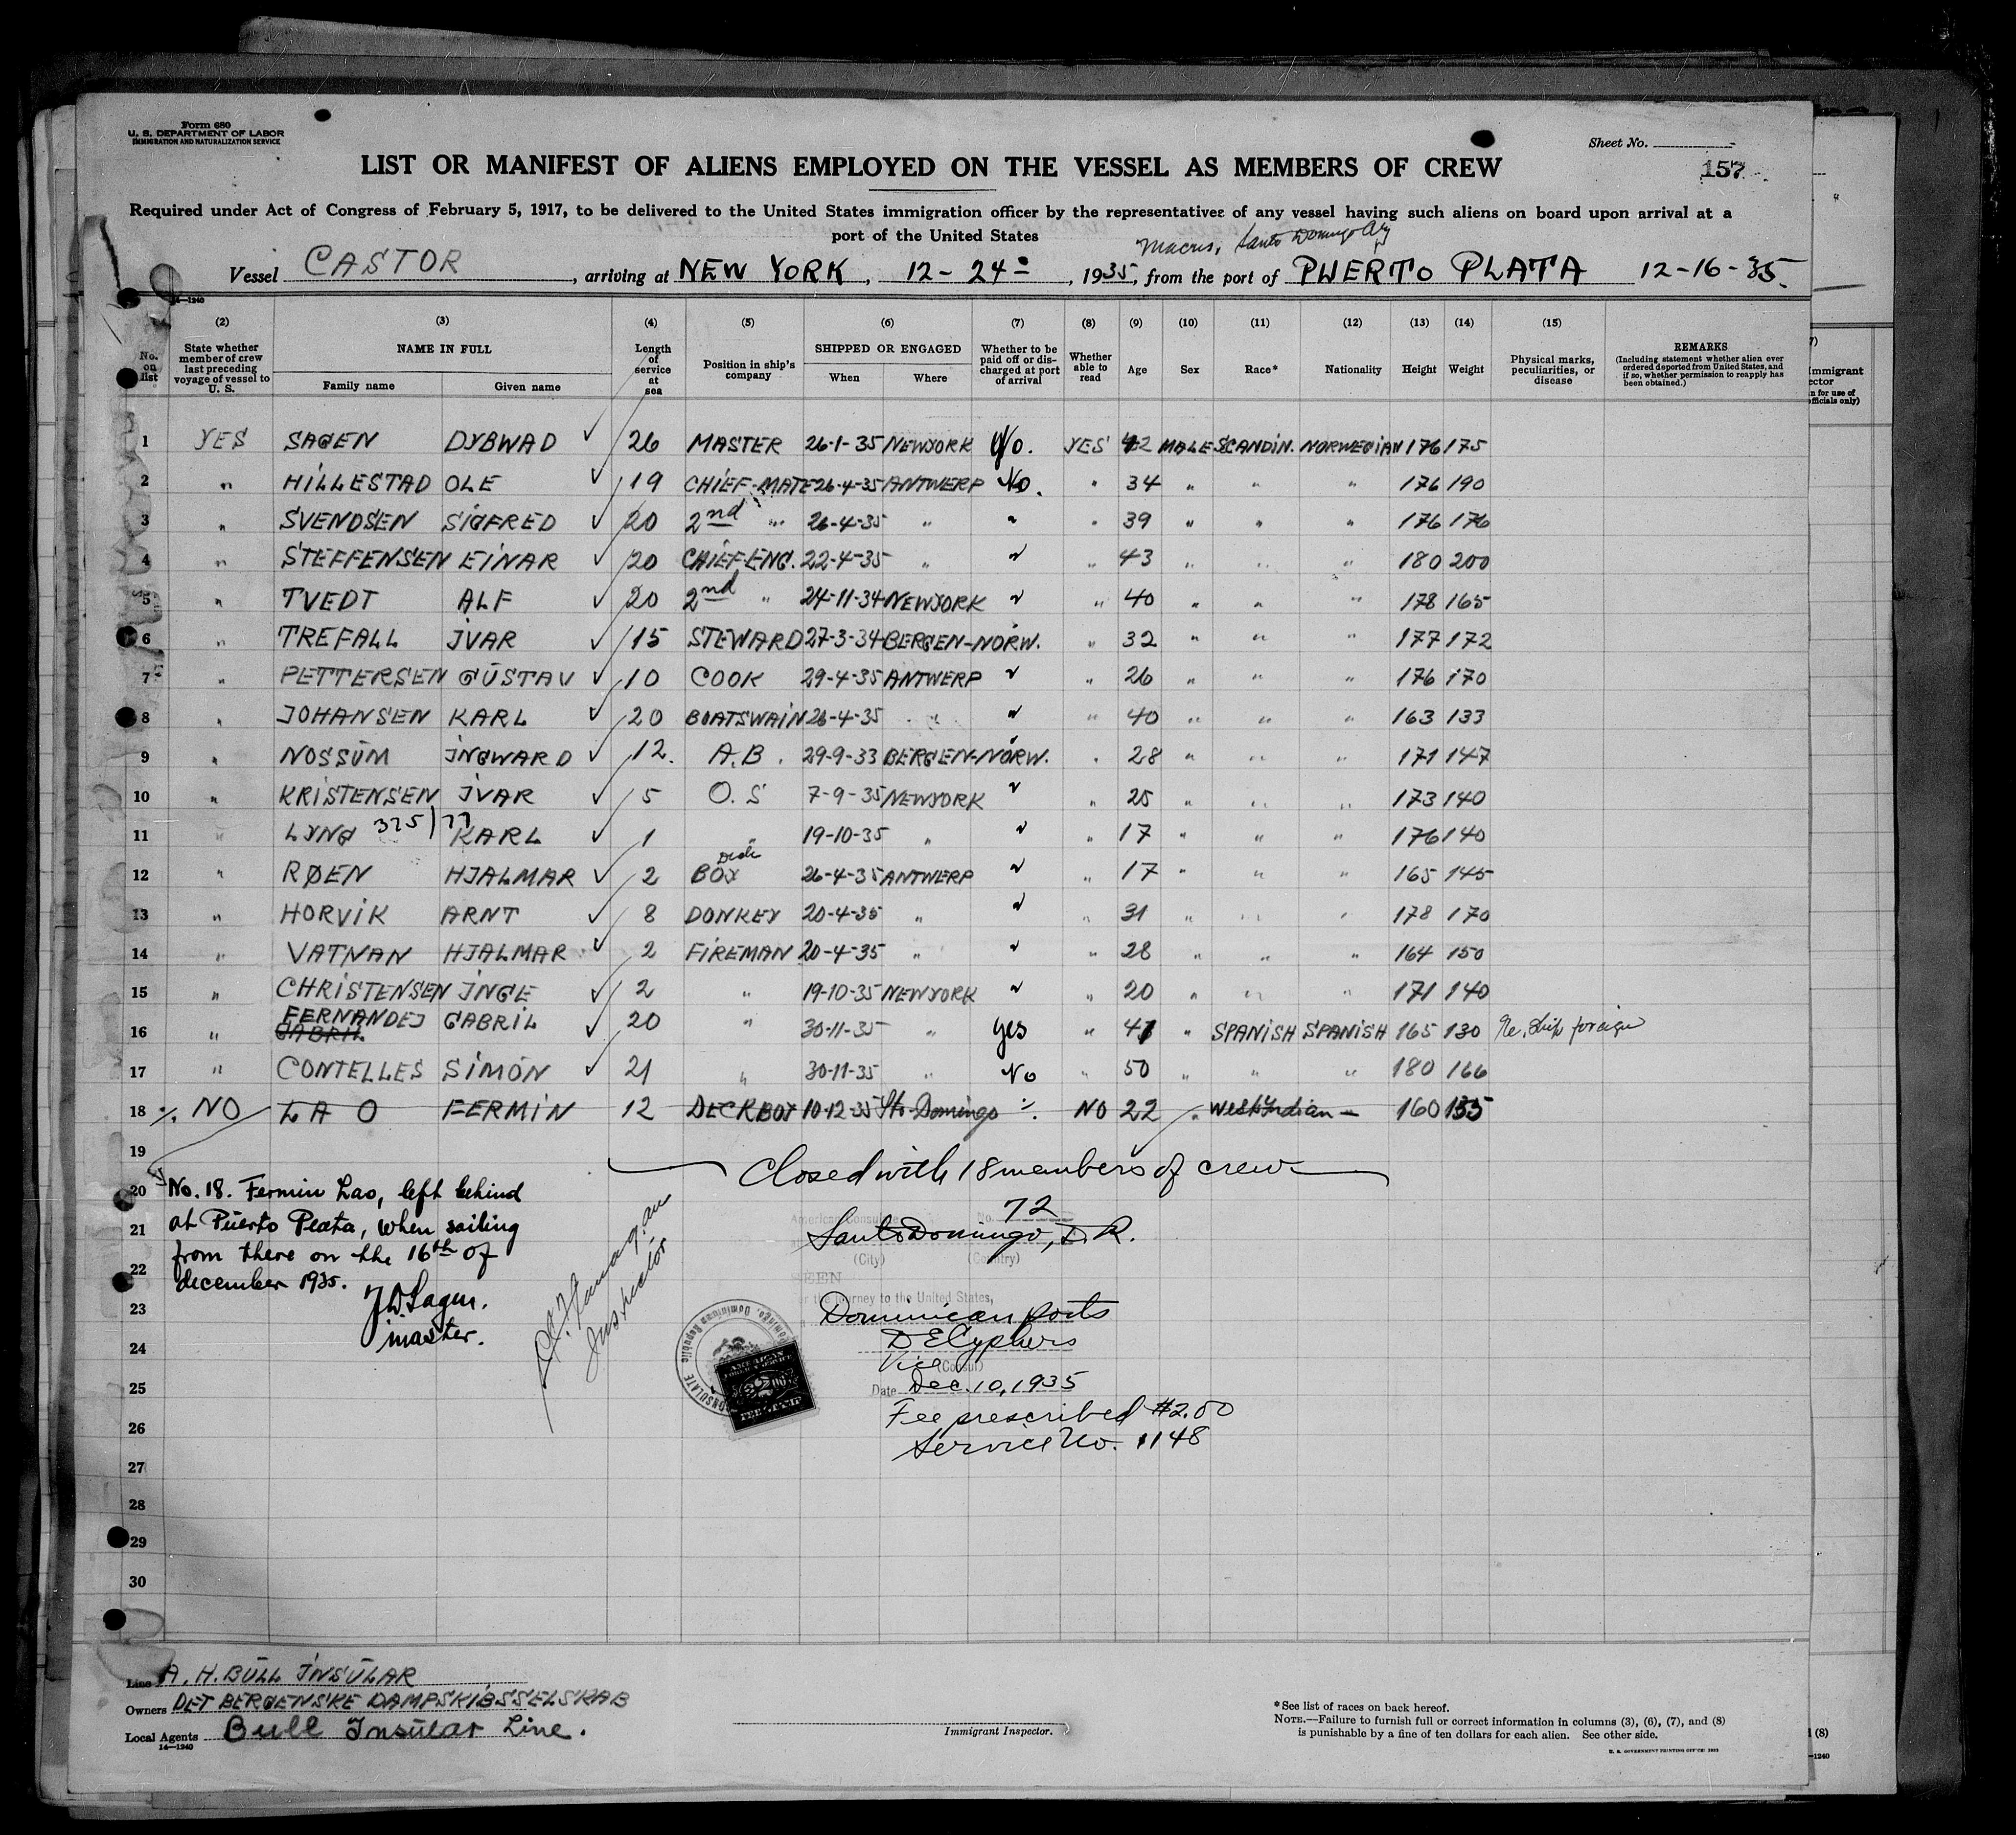 Form 680
U. S. DEPARTMENT OF LABOR
IMMIGRATION AND NATURALIZATION SERVICE
Sheet No.
157
LIST OR MANIFEST OF ALIENS EMPLOYED ON THE VESSEL AS MEMBERS OF CREW
Required under Act of Congress of February 5, 1917, to be delivered to the United States immigration officer by the representatives of any vessel having such aliens on board upon arrival at a
port of the United States
Macris, Santo Domingo City
Vessel CASTOR, arriving at NEW YORK, 12-24-, 1935, from the port of PUERTO PLATA 12-16-35.
14-1240
(2) (3) (4) (5) (6) (7) (8) (9) (10) (11) (12) (13) (14) (15)
No. on list
State whether member of crew last preceding voyage of vessel to U. S.
NAME IN FULL
Family name Given name
Length of service at sea
Position in ship's company
SHIPPED OR ENGAGED
When Where
Whether to be paid off or discharged at port of arrival
Whether able to read
Age Sex Race* Nationality Height Weight
Physical marks, peculiarities, or disease
REMARKS
(Including statement whether alien ever ordered deported from United States, and if so, whether permission to reapply has been obtained.)
1 YES SAGEN DYBWAD 26 MASTER 26-1-35 NEWYORK No. YES 42 MALE SCANDIN. NORWEGIAN 176 175
2 " HILLESTAD OLE 19 CHIEF-MATE 26-4-35 ANTWERP No. " 34 " " " 176 190
3 " SVENDSEN SIGFRED 20 2nd " 26-4-35 " " " 39 " " " 176 176
4 " STEFFENSEN EINAR 20 CHIEF-ENG. 22-4-35 " " " 43 " " " 180 200
5 " TVEDT ALF 20 2nd " 24-11-34 NEWYORK " " 40 " " " 178 165
6 " TREFALL IVAR 15 STEWARD 27-3-34 BERGEN-NORW. " " 32 " " " 177 172
7 " PETTERSEN GUSTAV 10 COOK 29-4-35 ANTWERP " " 26 " " " 176 170
8 " JOHANSEN KARL 20 BOATSWAIN 26-4-35 " " " 40 " " " 163 133
9 " NOSSUM INGWARD 12. A.B. 29-9-33 BERGEN-NORW. " " 28 " " " 171 147
10 " KRISTENSEN IVAR 5 O.S 7-9-35 NEWYORK " " 25 " " " 173 140
11 " LYNG 325/77 KARL 1 " 19-10-35 " " " 17 " " " 176 140
12 " RØEN HJALMAR 2 Deck BOY 26-4-35 ANTWERP " " 17 " " " 165 145
13 " HORVIK ARNT 8 DONKEY 20-4-35 " " " 31 " " " 178 170
14 " VATNAN HJALMAR 2 FIREMAN 20-4-35 " " " 28 " " " 164 150
15 " CHRISTENSEN INGE 2 " 19-10-35 NEWYORK " " 20 " " " 171 140
16 " FERNANDEJ GABRIL GABRIL 20 " 30-11-35 " yes " 41 " SPANISH SPANISH 165 130 Re. Ship foreign
17 " CONTELLES SIMON 21 " 30-11-35 " No " 50 " " " 180 166
18 NO LAO FERMIN 12 DECKBOY 10-12-35 Sto. Domingo NO 22 " West Indian - 160 155
19
20
21
22
23
24
25
26
27
28
29
30
Closed with 18 members of crew
No. 18. Fermin Lao, left behind
at Puerto Plata, when sailing
from there on the 16th of
december 1935.
Y D Sagen.
master.
Inspector
American Consulate No. 72
Santo Domingo, D. R.
(City) (Country)
SEEN
For the journey to the United States,
Dominican ports
D E Cyphers
Vice (Consul)
Date Dec. 10, 1935
Fee prescribed $2.00
Service No. 1148
AMERICAN
FOREIGN SERVICE
FEE STAMP
Line A. H. BULL INSULAR
Owners DET BERGENSKE DAMPSKIBSSELSKAB
Local Agents Bull Insular Line.
14-1240
Immigrant Inspector.
*See list of races on back hereof.
NOTE.—Failure to furnish full or correct information in columns (3), (6), (7), and (8)
is punishable by a fine of ten dollars for each alien. See other side.
U. S. GOVERNMENT PRINTING OFFICE: 1933